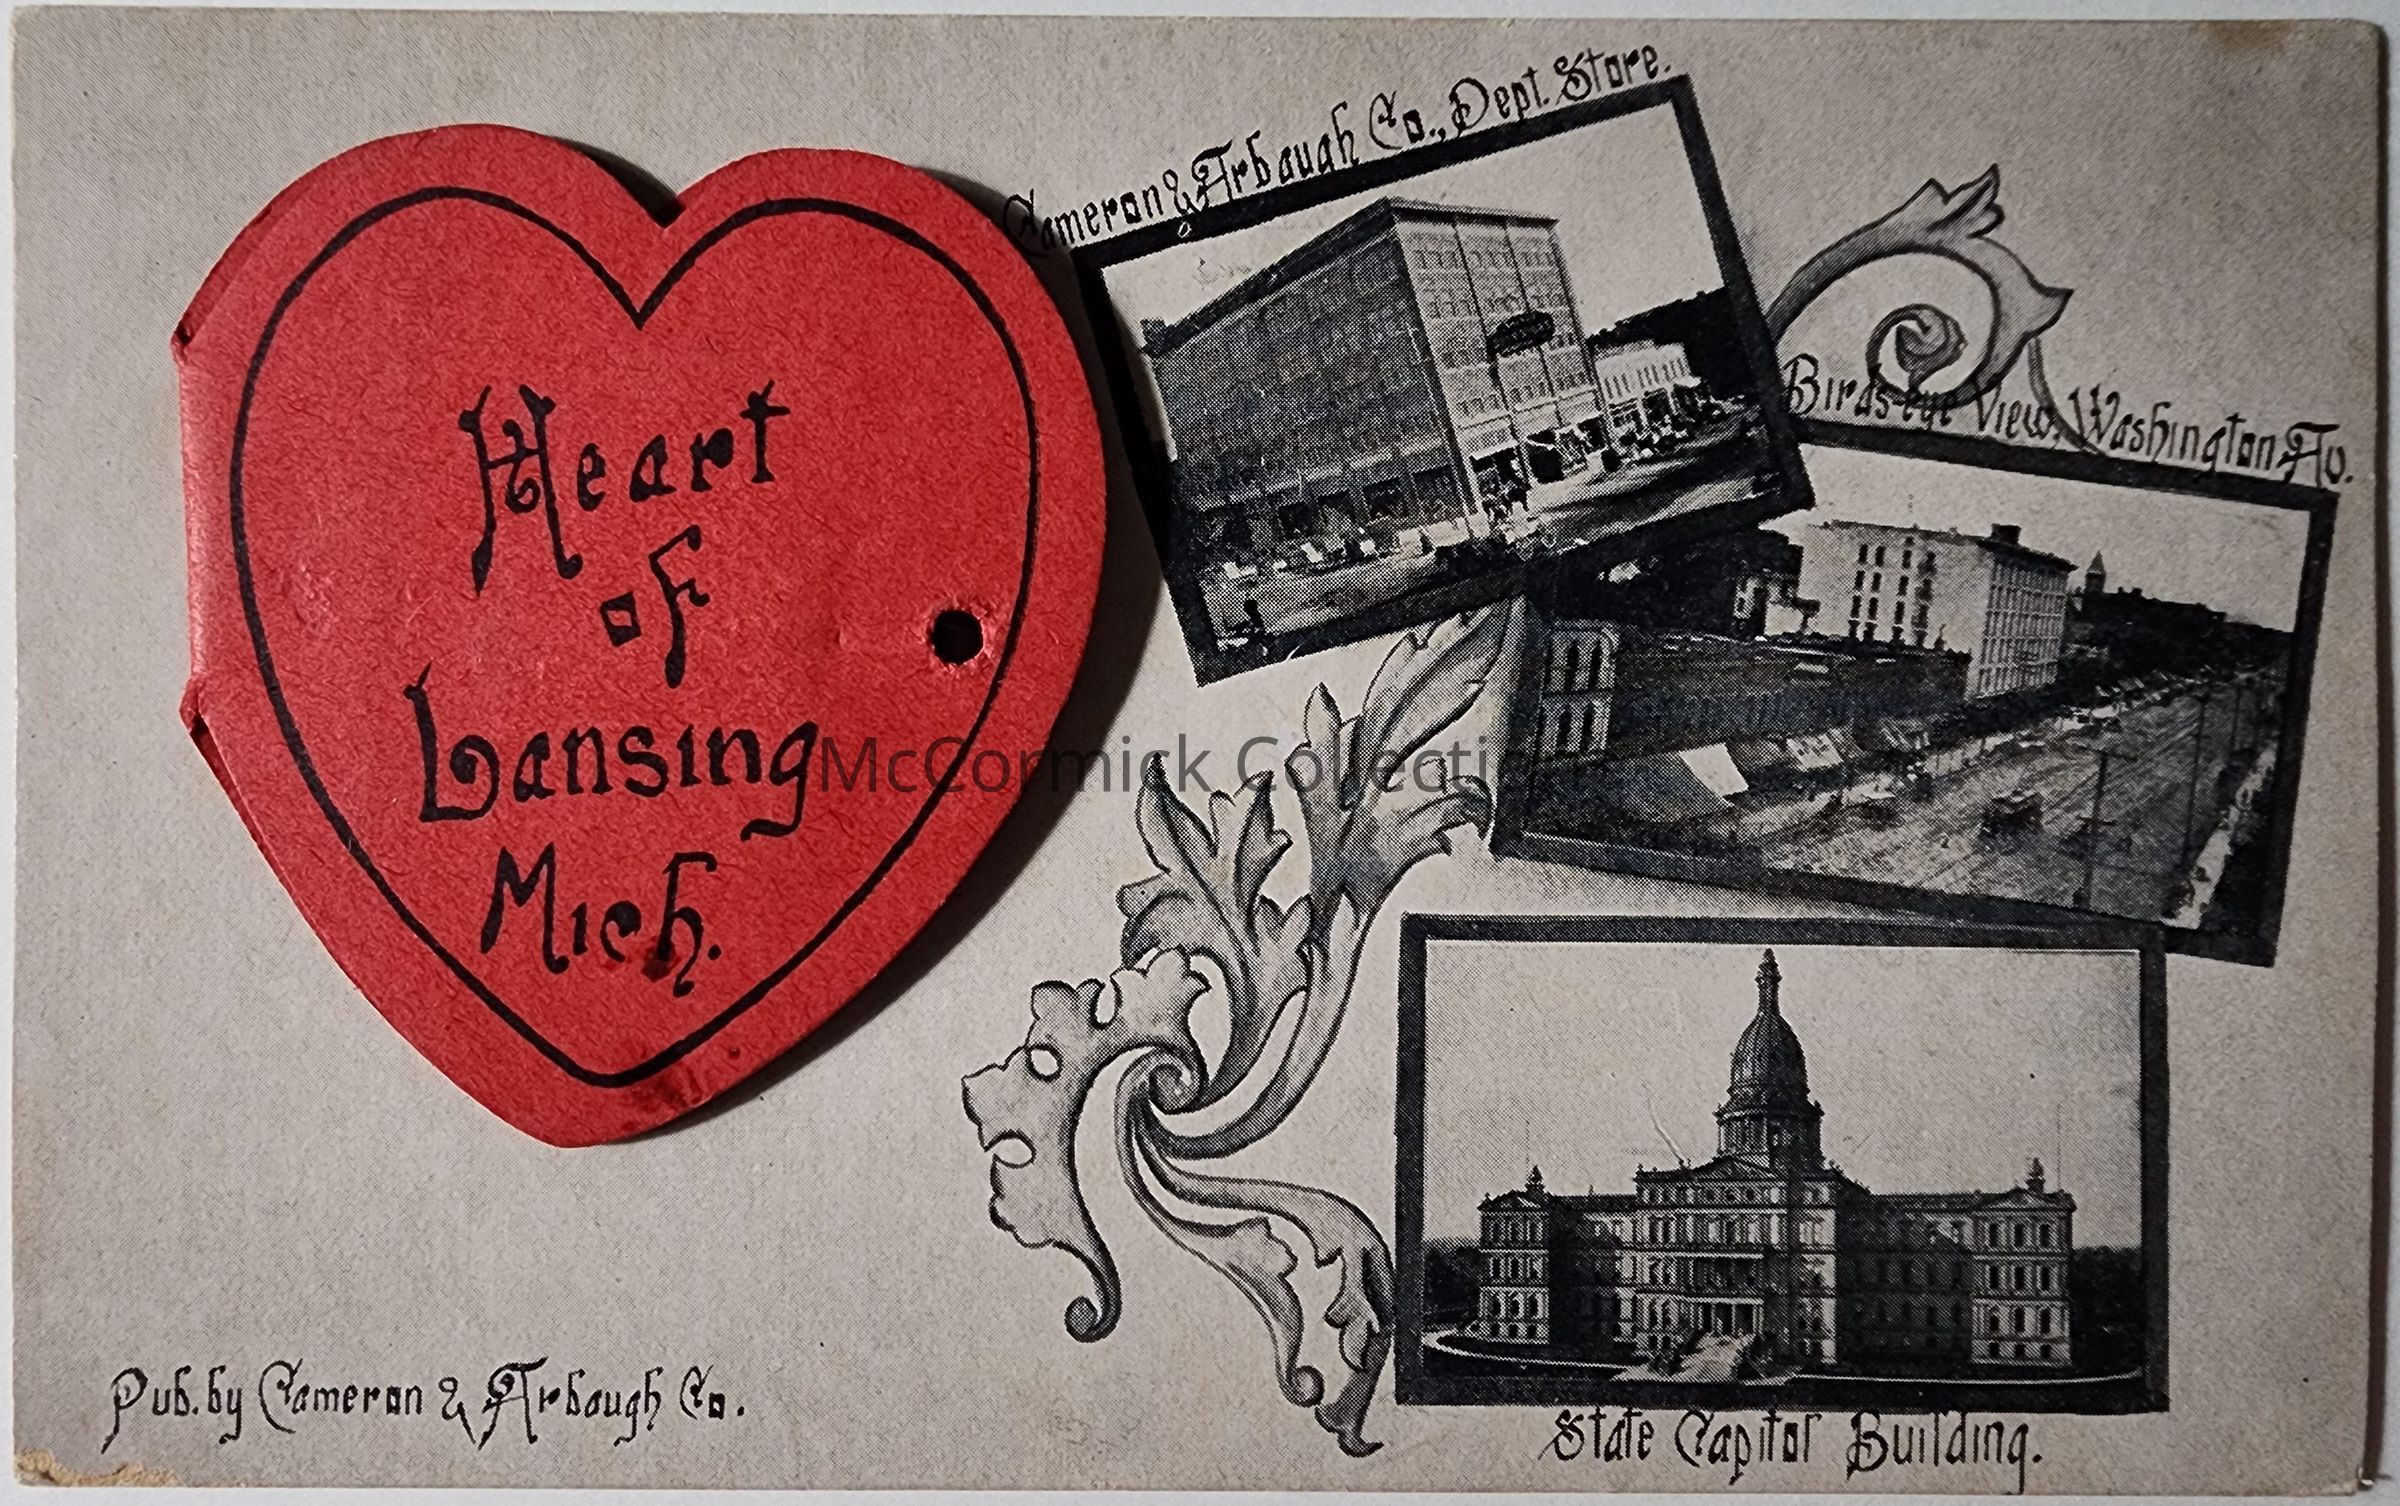 Heart
of
Lansing
Mich.
Cameron & Arbaugh Co., Dept. Store.
Birds-eye View, Washington Av.
State Capitol Building.
Pub. by Cameron & Arbaugh Co.
McCormick Collection